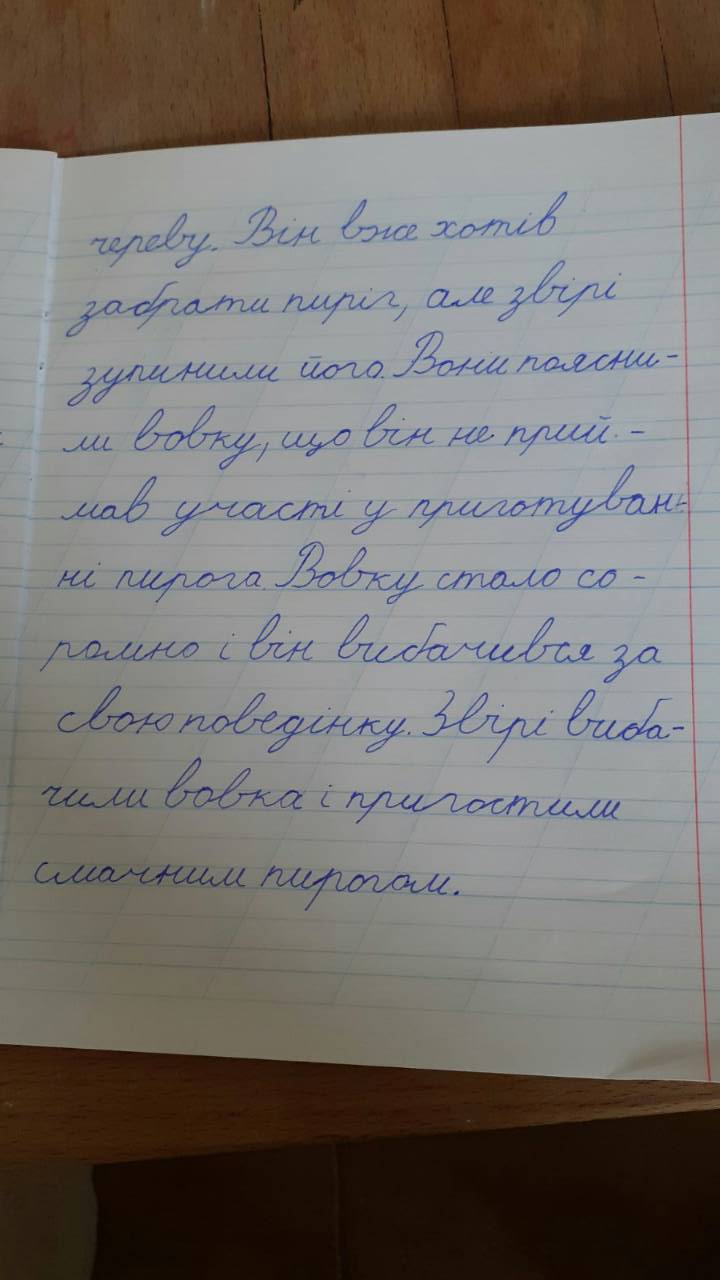 череву. Він вже хотів
забрати пиріг, але звірі
зупинили його. Вони поясни-
ли вовку, що він не прий-
мав участі у приготуван-
ні пирога. Вовку стало со-
ромно і він вибачився за
свою поведінку. Звірі виба-
чили вовка і пригостили
смачним пирогом.